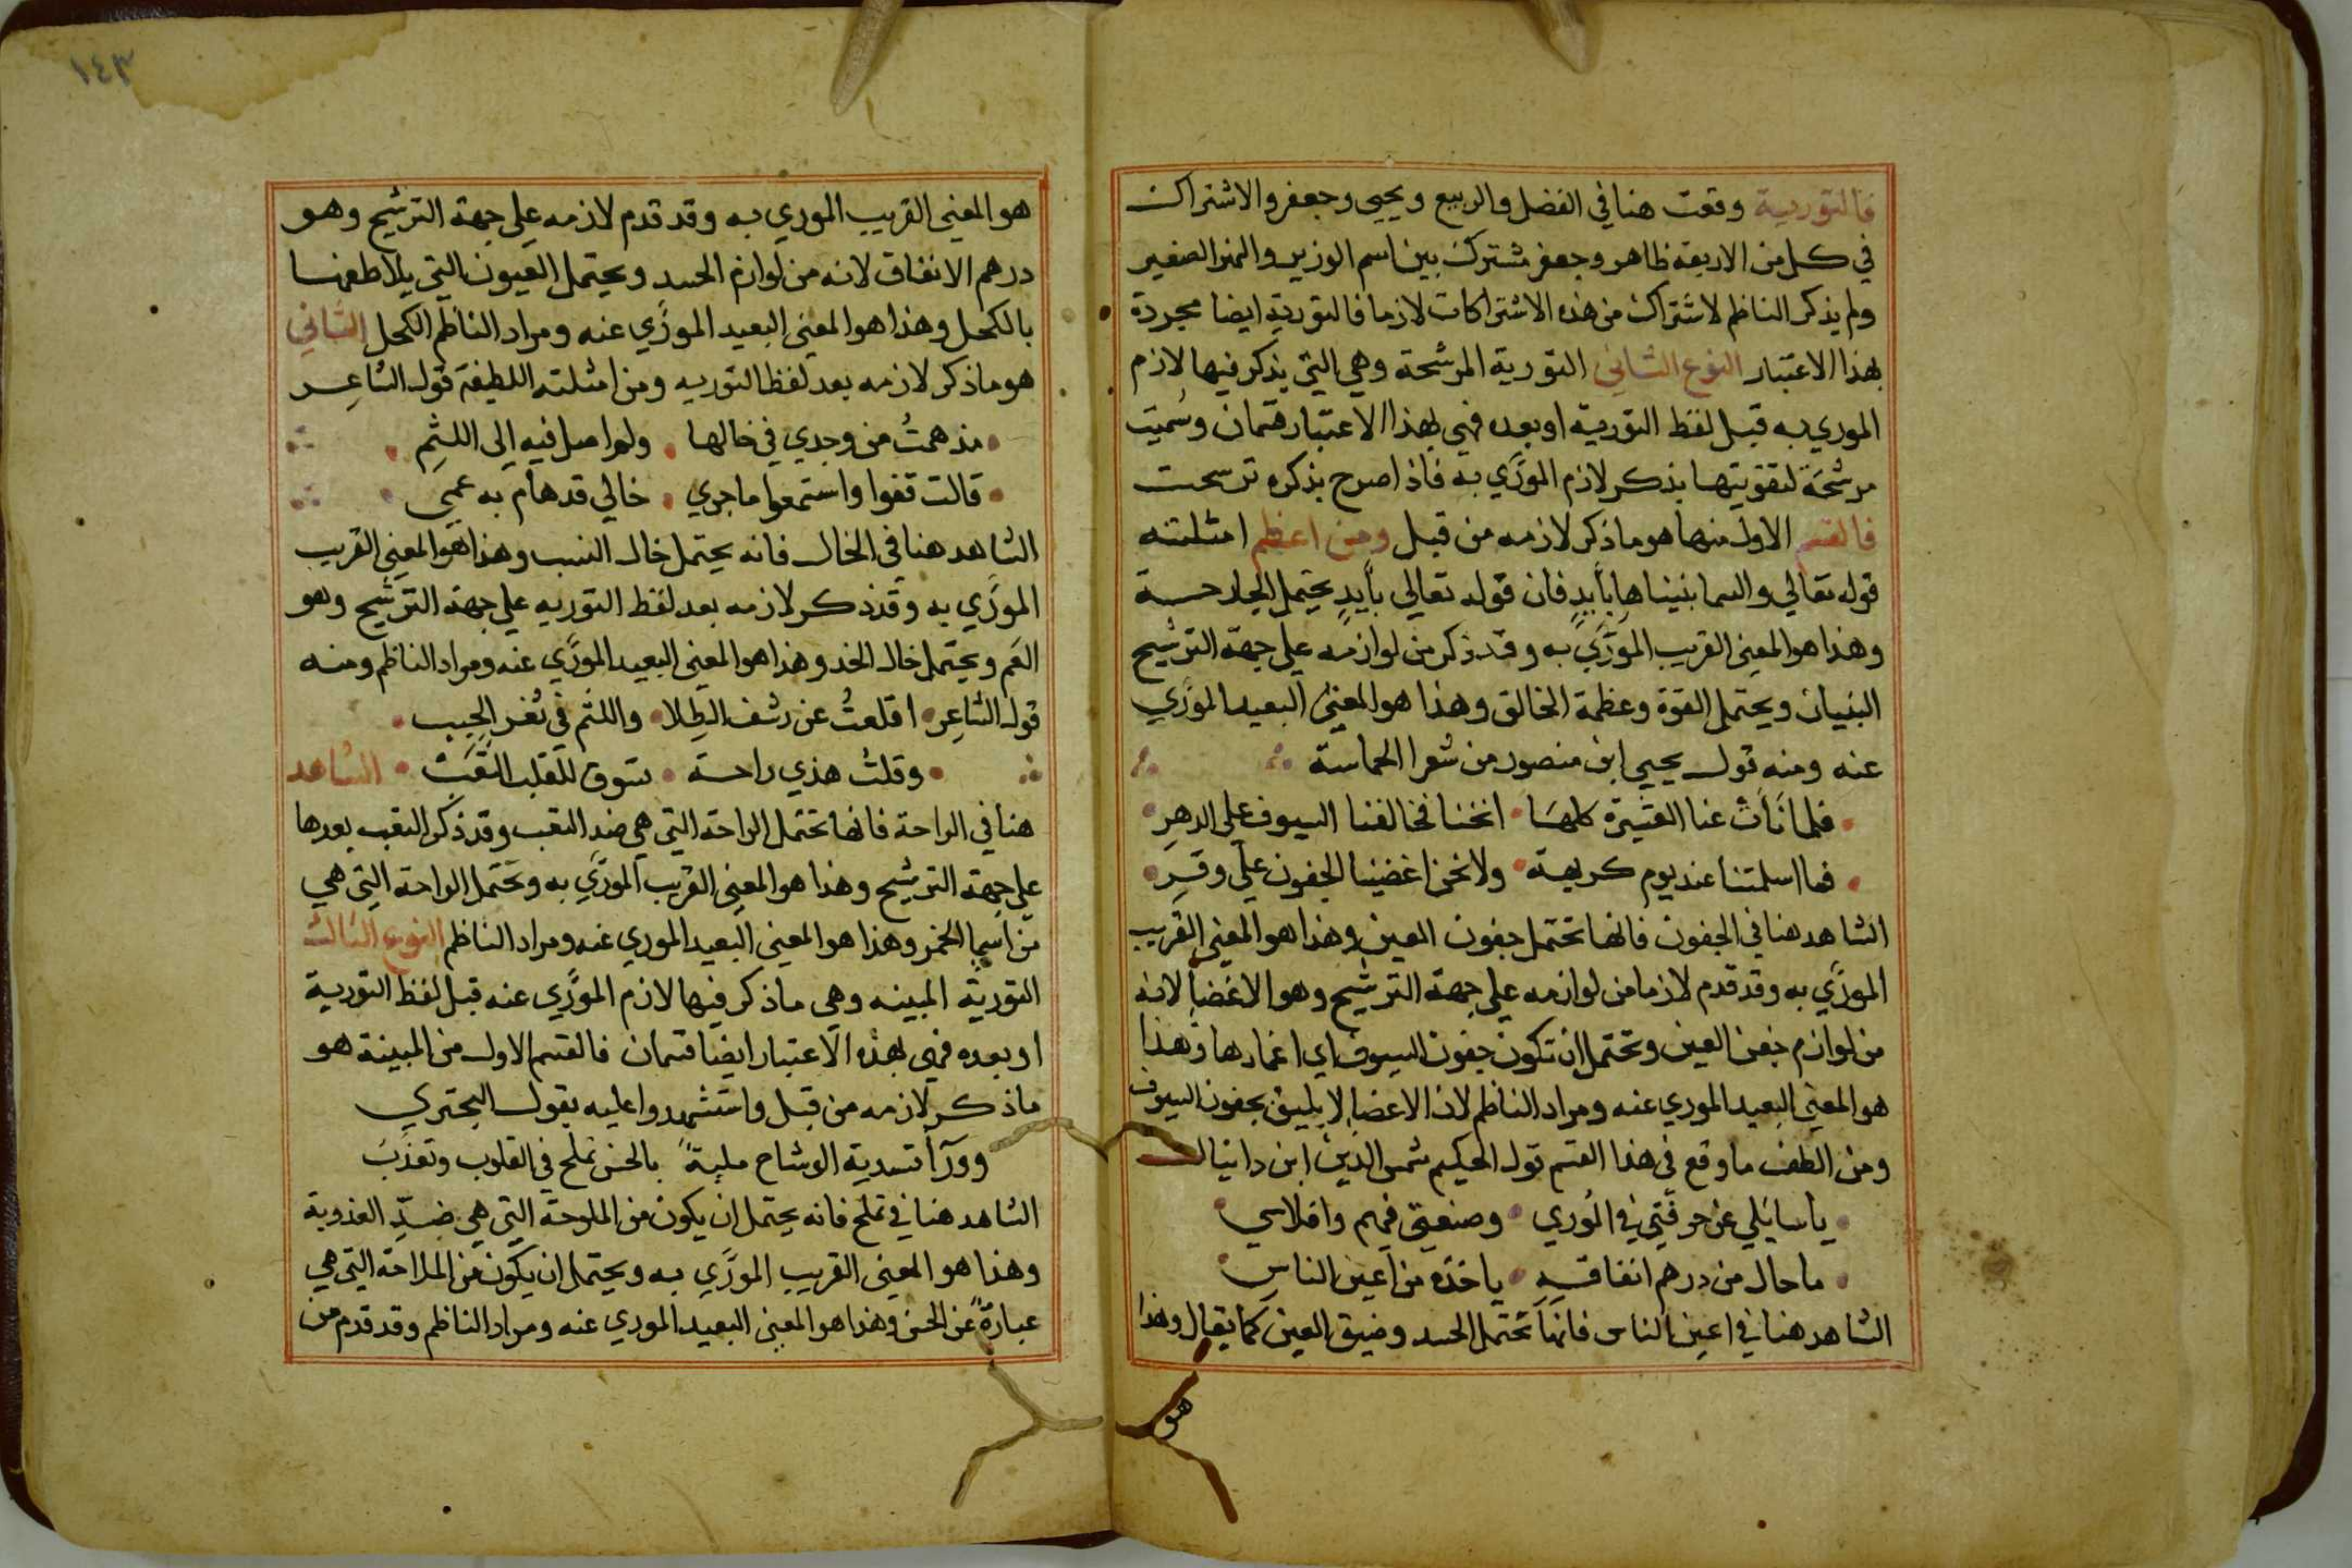 فالتورية وقعت هنا في الفضل والربيع ويحيى وجعفر والاشتراك
في كل من الاربعة ظاهر وجعفر مشترك بين اسم الوزير والنهر الصغير
ولم يذكر الناظم لاشتراك من هذه الاشتراكات لازما فالتورية ايضا مجردة
بهذا الاعتبار النوع الثاني التورية المرشحة وهي التي يذكر فيها لازم
الموري به قبل لفظ التورية او بعده فهي بهذا الاعتبار قسمان وسُميت
مرشحَة لتقويتها بذكر لازم المورَّي به فاذا صرح بذكره ترشحت
فالقسم الاول منها هو ما ذكر لازمه من قبل ومن اعظم امثلته
قوله تعالي والسما بنيناها بأيدٍ فان قوله تعالي بأيدٍ يحتمل الجارحـة
وهذا هو المعنى القريب المورَّي به وقد ذكر من لوازمه علي جهة الترشيح
البنيان ويحتمل القوة وعظمة الخالق وهذا هو المعنى البعيد المورَّي
عنه ومنه قول يحيي ابن منصور من شعرا الحماسة
فلما نَأت عنا العشيرة كلهَا • انخنا فخالفنا السيوف علي الدهرِ
فما اسلمتنا عند يوم كريهة • ولا نحن اغضينا الجفون علي وقرِ
الشاهد هنا في الجفون فانها تحتمل جفون العين وهذا هو المعنى القريب
المورَّي به وقد قدم لازما من لوازمه علي جهة الترشيح وهو الاغضا لانه
من لوازم جفن العين وتحتمل ان تكون جفون السيوف اي اغمادها وهذا
هو المعنى البعيد الموري عنه ومراد الناظم لان الاغضا لا يليق بجفون السيوف
ومن الطف ما وقع في هذا القسم قول الحكيم شمس الدين ابن دانيال
يا سايلي عن حرفتي في الوري • وصنعتي فيهم وافلاسي
ما حال من درهم انفاقـهِ • ياخذه من اعين الناسِ
الشاهد هنا في اعين الناس فانها تحتمل الحسد وضيق العين كما يقال وهذا
هو
١٤٣
هو المعنى القريب الموري به وقد قدم لازمه علي جهة الترشيح وهو
درهم الانفاق لانه من لوازم الحسد ويحتمل العيون التي يلاطفها
بالكحل وهذا هو المعنى البعيد المورَّي عنه ومراد الناظم الكحل الثاني
هو ما ذكر لازمه بعد لفظ التوريه ومن امثلته اللطيفة قول الشاعر
مذ همتُ من وجدي في خالها • ولم اصل فيه الى اللثمِ
قالت قفوا واستمعوا ما جري • خالي قد هام به عمي
الشاهد هنا في الخال فانه يحتمل خال النسب وهذا هو المعنى القريب
المورَّي به وقد ذكر لازمه بعد لفظ التوريه علي جهة الترشيح وهو
العم ويحتمل خال الخد وهذا هو المعنى البعيد المورَّي عنه ومراد الناظم ومنه
قول الشاعر • اقلعتُ عن رشف الطلا • واللثم في ثغر الحبب
وقلتُ هذي راحـة • تسوق للقلب التعَب • الشاهد
هنا في الراحة فانها تحتمل الراحة التي هي ضد التعب وقد ذكر التعب بعدها
علي جهة الترشيح وهذا هو المعنى القريب المورَّي به وتحتمل الراحة التي هي
من اسما الخمر وهذا هو المعنى البعيد الموري عنه ومراد الناظم النوع الثالث
التورية المبينه وهي ما ذكر فيها لازم المورَّي عنه قبل لفظ التورية
او بعده فهي بهذه الاعتبار ايضا قسمان فالقسم الاول من المبينة هو
ما ذكر لازمه من قبل واستشهدوا عليه بقول البحتري
وورآ تسدية الوشاح ملية بالحسن تملح في القلوب وتعذب
الشاهد هنا في تملح فانه يحتمل ان يكون من الملوحة التي هي ضدّ العذوبة
وهذا هو المعنى القريب المورَّي به ويحتمل ان يكون من الملاحة التي هي
عبارة عن الحسن وهذا هو المعنى البعيد الموري عنه ومراد الناظم وقد قدم من